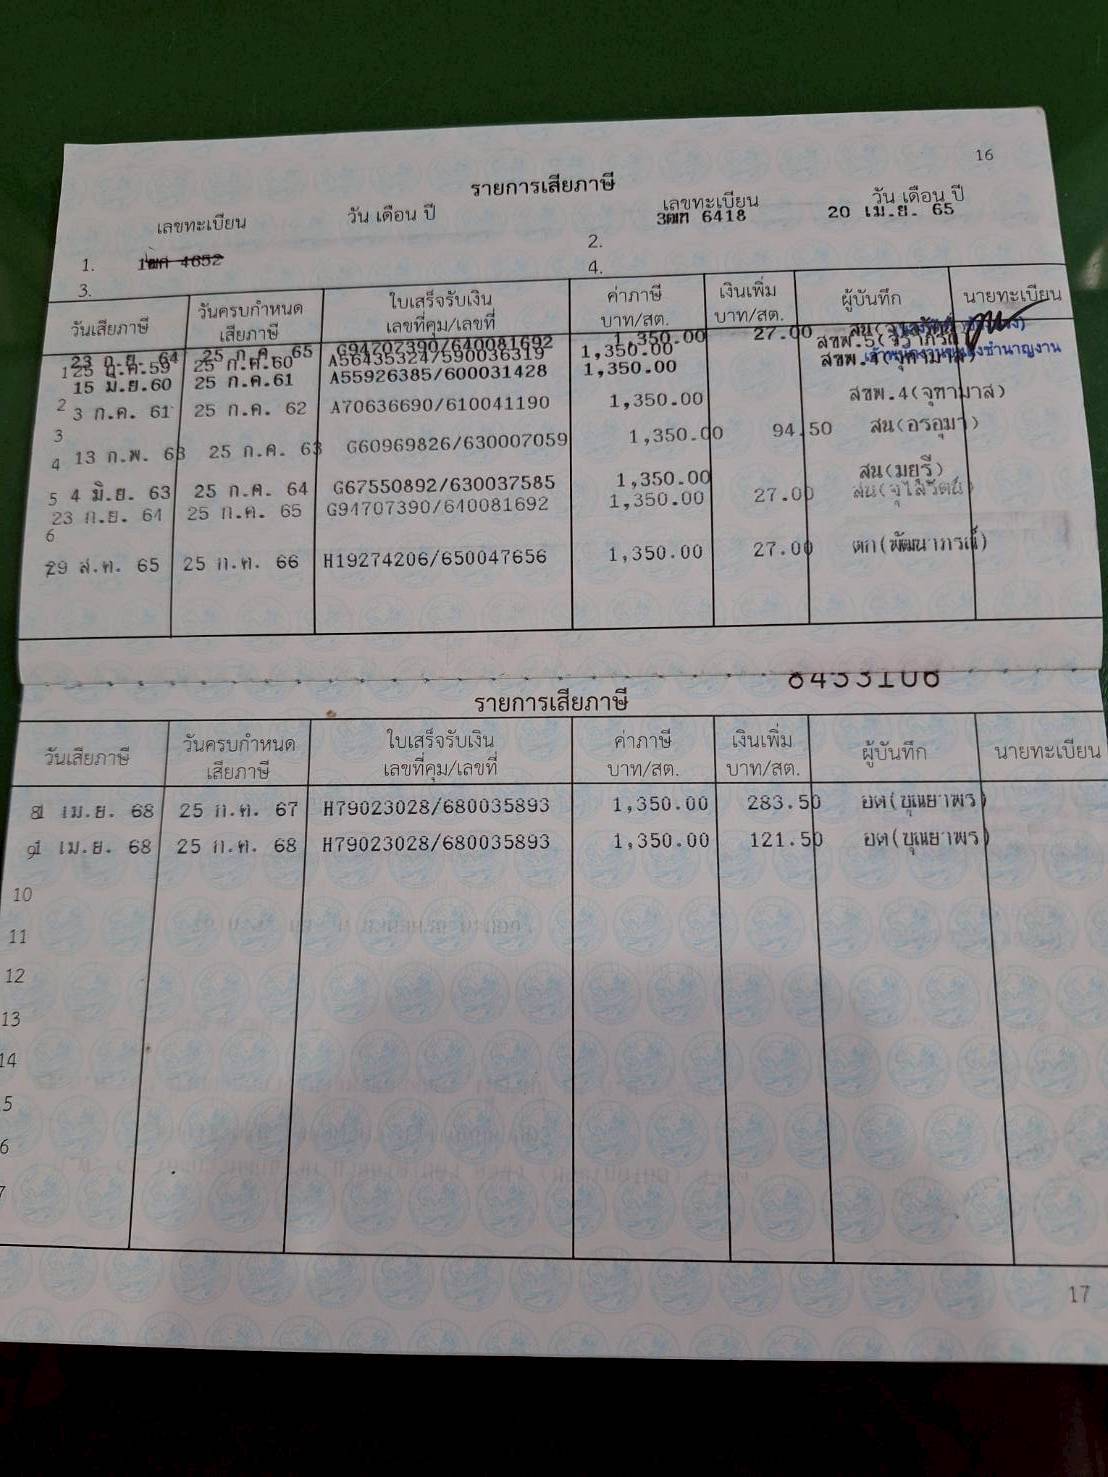 16
รายการเสียภาษี
เลขทะเบียน วัน เดือน ปี เลขทะเบียน วัน เดือน ปี
1. 4652 2. 3ฒฑ 6418 20 เม.ย. 65
3. 4.
วันเสียภาษี วันครบกำหนดเสียภาษี ใบเสร็จรับเงิน เลขที่คุม/เลขที่ ค่าภาษี บาท/สต. เงินเพิ่ม บาท/สต. ผู้บันทึก นายทะเบียน
23 ก.ย. 64 25 ก.ค. 65 G94707390/640081692 1,350.00 27.00
1 25 59 25 ก.ค.60 A56435324/590036319 1,350.00 สขพ.5
15 มิ.ย.60 25 ก.ค.61 A55926385/600031428 1,350.00 สขพ.4(จุฑามาส)
2 3 ก.ค. 61 25 ก.ค. 62 A70636690/610041190 1,350.00 สขพ.4(จุฑามาส)
3
4 13 ก.พ. 63 25 ก.ค. 63 G60969826/630007059 1,350.00 94.50 สน(อรอุมา)
5 4 มิ.ย. 63 25 ก.ค. 64 G67550892/630037585 1,350.00 สน(มยุรี)
23 ก.ย. 64 25 ก.ค. 65 G94707390/640081692 1,350.00 27.00 สน(จุไลรัตน์)
6
7 29 ส.ค. 65 25 ก.ค. 66 H19274206/650047656 1,350.00 27.00 ตก(พัฒนาภรณ์)
8453106
รายการเสียภาษี
วันเสียภาษี วันครบกำหนดเสียภาษี ใบเสร็จรับเงิน เลขที่คุม/เลขที่ ค่าภาษี บาท/สต. เงินเพิ่ม บาท/สต. ผู้บันทึก นายทะเบียน
8 1 เม.ย. 68 25 ก.ค. 67 H79023028/680035893 1,350.00 283.50 อต(บุณยาพร)
9 1 เม.ย. 68 25 ก.ค. 68 H79023028/680035893 1,350.00 121.50 อต(บุณยาพร)
10
11
12
13
14
5
6
7
17